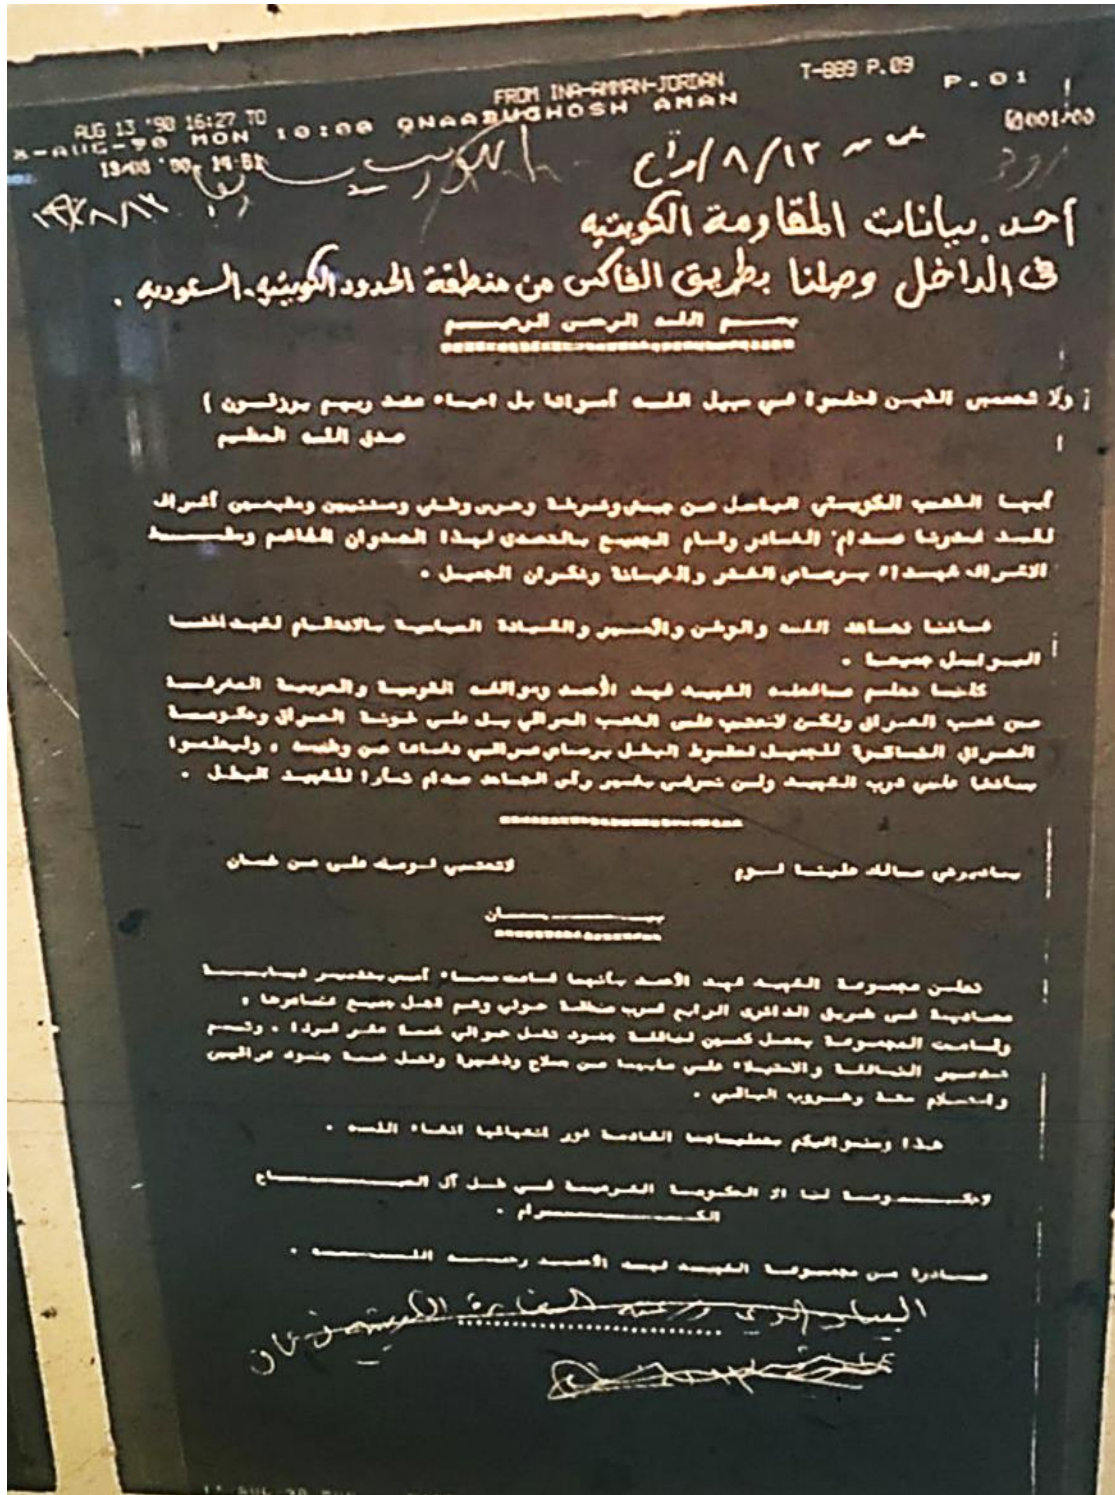 FROM INA-AMMAN-JORDAN T-889 P.09
AUG 13 '90 16:27 TO
-AUG-90 MON 10:00 QNAABUGHOSH AMAN P.01
أحد بيانات المقاومة الكويتيه
فى الداخل وصلنا بطريق الفاكس من منطقة الحدود الكويتيه. السعوديه .
بسم اللـه الرحمن الرحيم
ولا تحسبن الذين قتلوا في سبيل اللـه أمواتا بل احياء عند ربهم يرزقون )
صدق اللـه العظيم
أيها الشعب الكويتي الباسل من جيش وشرطة وحرس وطني ومدنيين ومقيمين أشراف
لقد غدرنا صدام الغادر وقام الجميع بالتصدى لهذا العدوان الغاشم وسقط
الاشراف شهداء برصاص الغدر والخيانة ونكران الجميل .
فاننا نعاهد اللـه والوطن والأمير والقيادة السياسية بالانتقام لشهدائنا
البواسل جميعا .
كلنا نعلم مافعله الشهيد فهد الأحمد ومواقفه القومية والعربية المشرفة
من شعب العراق ولكن لانعتب على الشعب العراقي بل على خونة العراق وحكومة
العراق الناكرة للجميل لسقوط البطل برصاص عراقي دفاعا عن وطنه ، وليعلموا
بأننا على درب الشهيد ولن نرضى بغير رأس الجاحد صدام ثأرا للشهيد البطل .
مالك علينا لوم لاتعتبي لومك على من خان
بيـــان
تعلن مجموعة الشهيد فهد الأحمد بأنها قامت مساء أمس بتدمير دبابة
معادية في طريق الدائرى الرابع قرب منطقة حولي وتم قتل جميع عناصرها ،
وقامت المجموعة بعمل كمين لناقلة جنود تقل حوالي خمسة عشر فردا . وتم
تدمير الناقلة والاستيلاء على مابها من سلاح وذخيرة وقتل خمسة جنود عراقيين
واستسلام ستة وهروب الباقي .
هذا وسنوافيكم بعملياتنا القادمة فور انتهائها انشاء اللـه .
لاحكـومة لنا الا الحكومة الشرعية في ظل آل الصبـــاح
الكـــرام .
صادرة من مجموعة الشهيد فهد الأحمد رحمه اللـه .